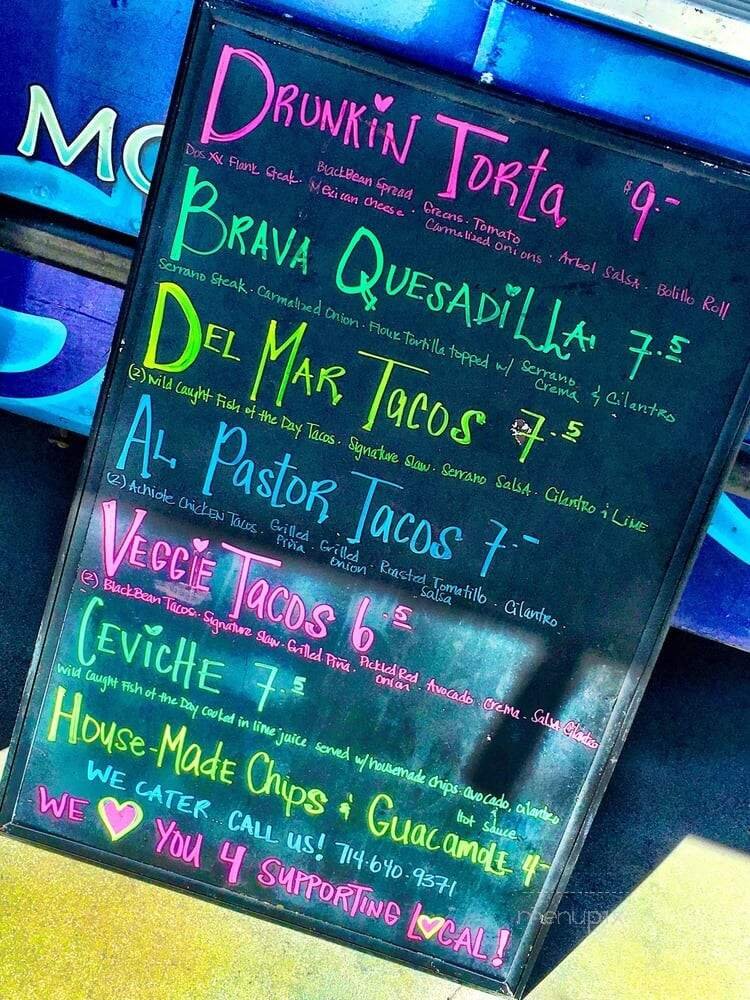 MO
DRUNKiN TORTA $9.-
Dos XX Flank Steak. BlackBean Spread Mexican Cheese. Greens. Tomato Carmalized Onions. Arbol Salsa. Bolillo Roll
BRAVA QUESADiLLA! 7.5
Serrano Steak. Carmalized Onion. Flour Tortilla topped w/ Serrano Crema & Cilantro
DEL MAR TACOS 7.5
(2) Wild Caught Fish of the Day Tacos. Signature Slaw. Serrano Salsa. Cilantro & Lime
AL PASTOR TACOS 7.-
(2) Achiote Chicken Tacos. Grilled Piña. Grilled Onion. Roasted Tomatillo Salsa. Cilantro.
VEGGiE TACOS 6.5
(2) BlackBean Tacos. Signature Slaw. Grilled Piña. Pickled Red Onion. Avocado Crema. Salsa Cilantro
CEViCHE 7.5
Wild Caught Fish of the Day cooked in lime juice served w/ housemade chips. avocado, cilantro & hot sauce
HOUSE-MADE CHiPS & GUACAMOLE 4-
WE CATER CALL US! 714.640.9371
WE YOU 4 SUPPORTiNG LOCAL!
menupix